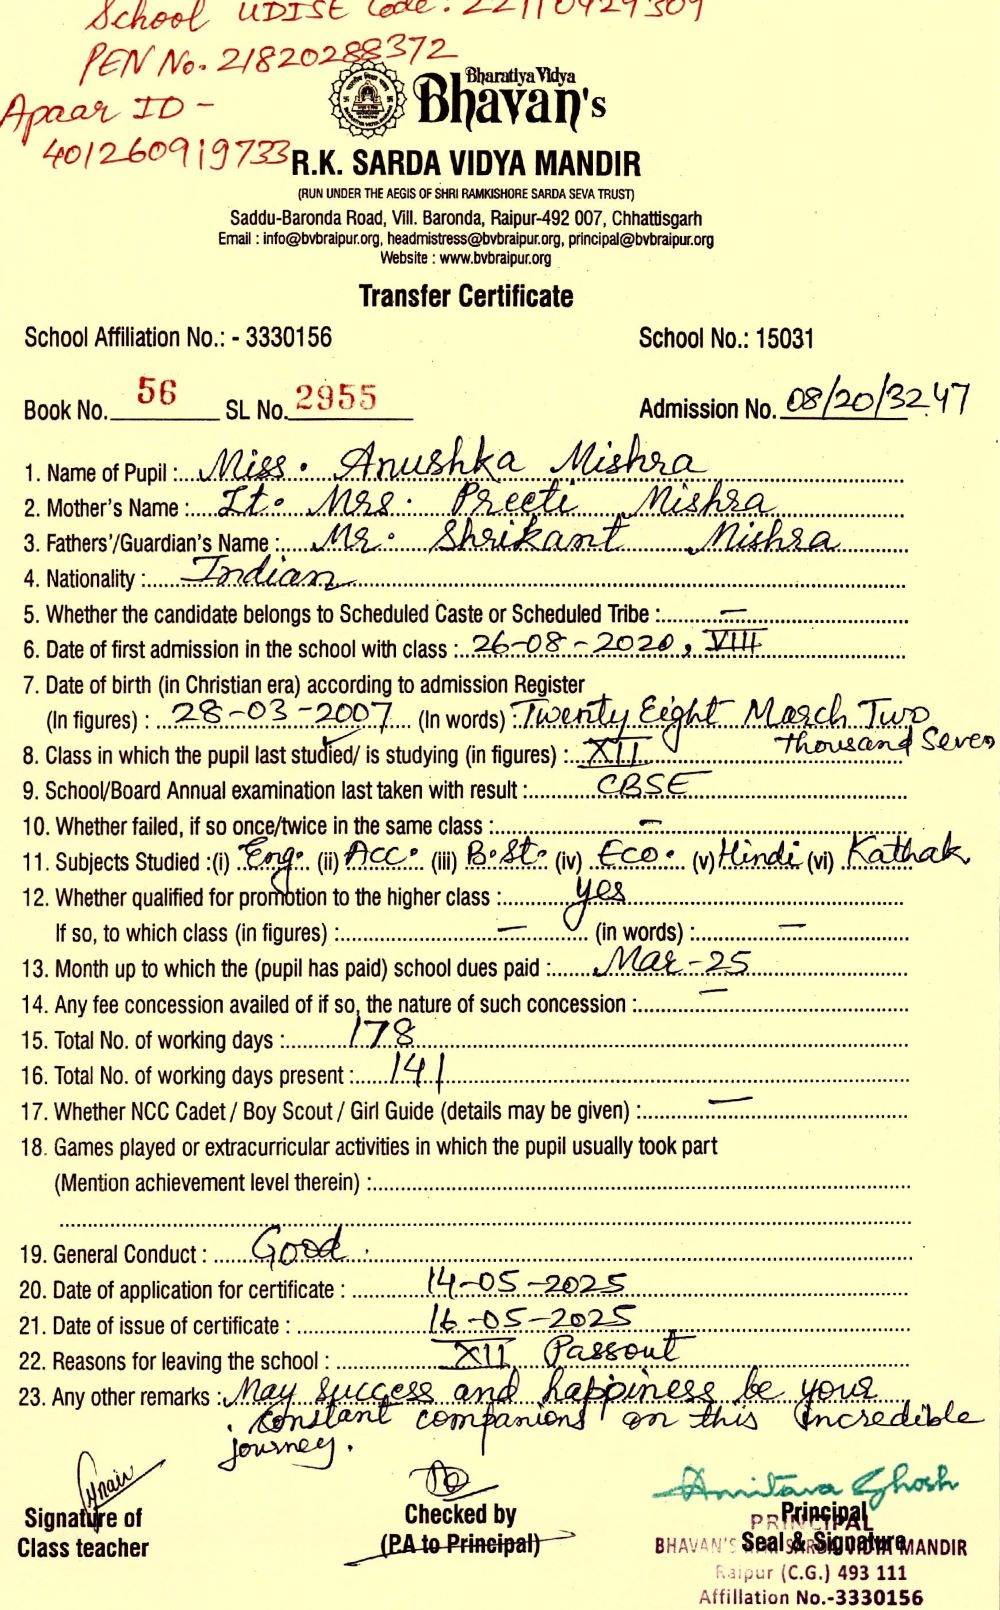 School UDISE Code: 22110929309
PEN No. 21820288372
Apaar ID -
401260919733
Bharatiya Vidya
Bhavan's
R.K. SARDA VIDYA MANDIR
(RUN UNDER THE AEGIS OF SHRI RAMKISHORE SARDA SEVA TRUST)
Saddu-Baronda Road, Vill. Baronda, Raipur-492 007, Chhattisgarh
Email : info@bvbraipur.org, headmistress@bvbraipur.org, principal@bvbraipur.org
Website : www.bvbraipur.org
Transfer Certificate
School Affiliation No.: - 3330156 School No.: 15031
Book No. 56 SL No. 2955 Admission No. 08/20/3247
1. Name of Pupil : Miss. Anushka Mishra
2. Mother's Name : Lt. Mrs. Preeti Mishra
3. Fathers'/Guardian's Name : Mr. Shrikant Mishra
4. Nationality : Indian
5. Whether the candidate belongs to Scheduled Caste or Scheduled Tribe : —
6. Date of first admission in the school with class : 26-08-2020, VIII
7. Date of birth (in Christian era) according to admission Register
(In figures) : 28-03-2007 (In words) : Twenty Eight March Two
thousand Seven
8. Class in which the pupil last studied/ is studying (in figures) : XII
9. School/Board Annual examination last taken with result : CBSE
10. Whether failed, if so once/twice in the same class : —
11. Subjects Studied :(i) Eng. (ii) Acc. (iii) B.St. (iv) Eco. (v) Hindi (vi) Kathak
12. Whether qualified for promotion to the higher class : yes
If so, to which class (in figures) : — (in words) : —
13. Month up to which the (pupil has paid) school dues paid : Mar-25
14. Any fee concession availed of if so, the nature of such concession : —
15. Total No. of working days : 178
16. Total No. of working days present : 141
17. Whether NCC Cadet / Boy Scout / Girl Guide (details may be given) : —
18. Games played or extracurricular activities in which the pupil usually took part
(Mention achievement level therein) :
19. General Conduct : Good.
20. Date of application for certificate : 14-05-2025
21. Date of issue of certificate : 16-05-2025
22. Reasons for leaving the school : XII Passout
23. Any other remarks : May success and happiness be your
constant companions on this incredible
journey.
Amitava Ghosh
Signature of
Class teacher
Checked by
(P.A to Principal)
Principal
Seal & Signature
PRINCIPAL
BHAVAN'S R.K. SARDA VIDYA MANDIR
Raipur (C.G.) 493 111
Affillation No.-3330156